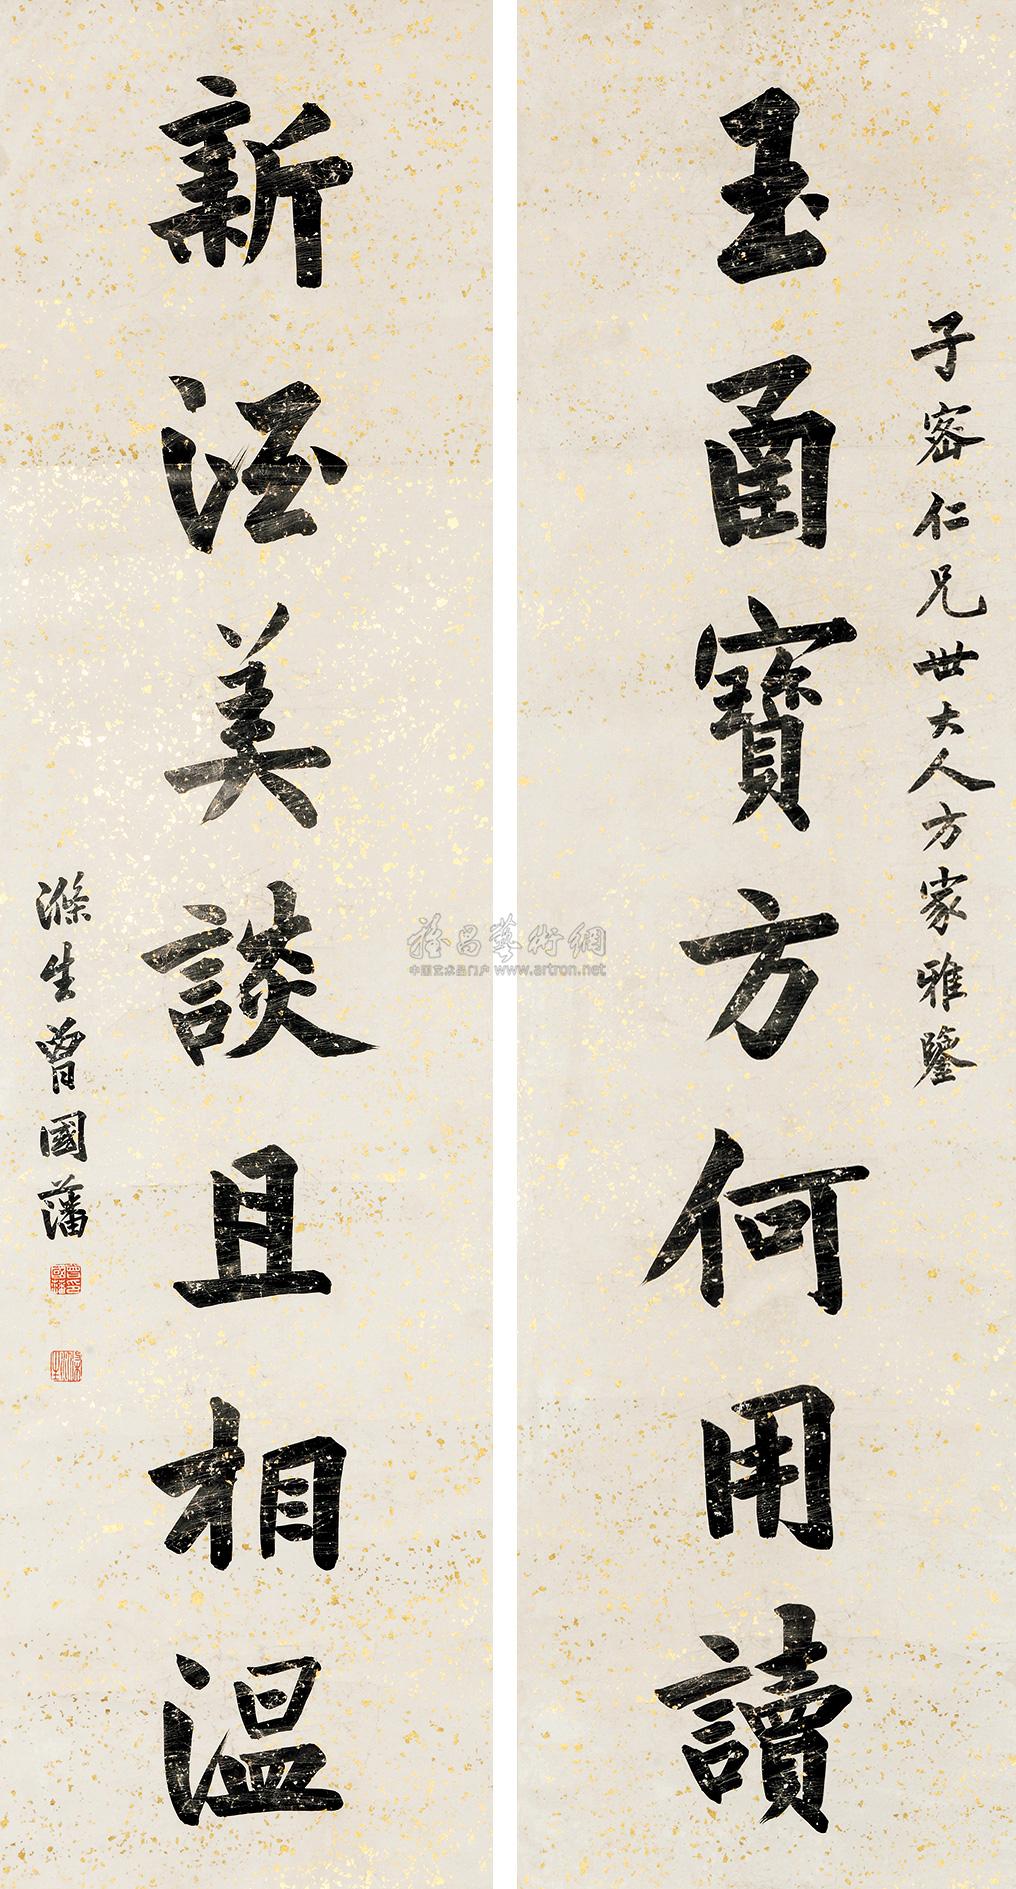 子密仁兄世大人方家雅鑒
玉函寶方何用讀
新酒美談且相溫
滌生曾國藩
雅昌藝術網
中国艺术品门户 www.artron.net